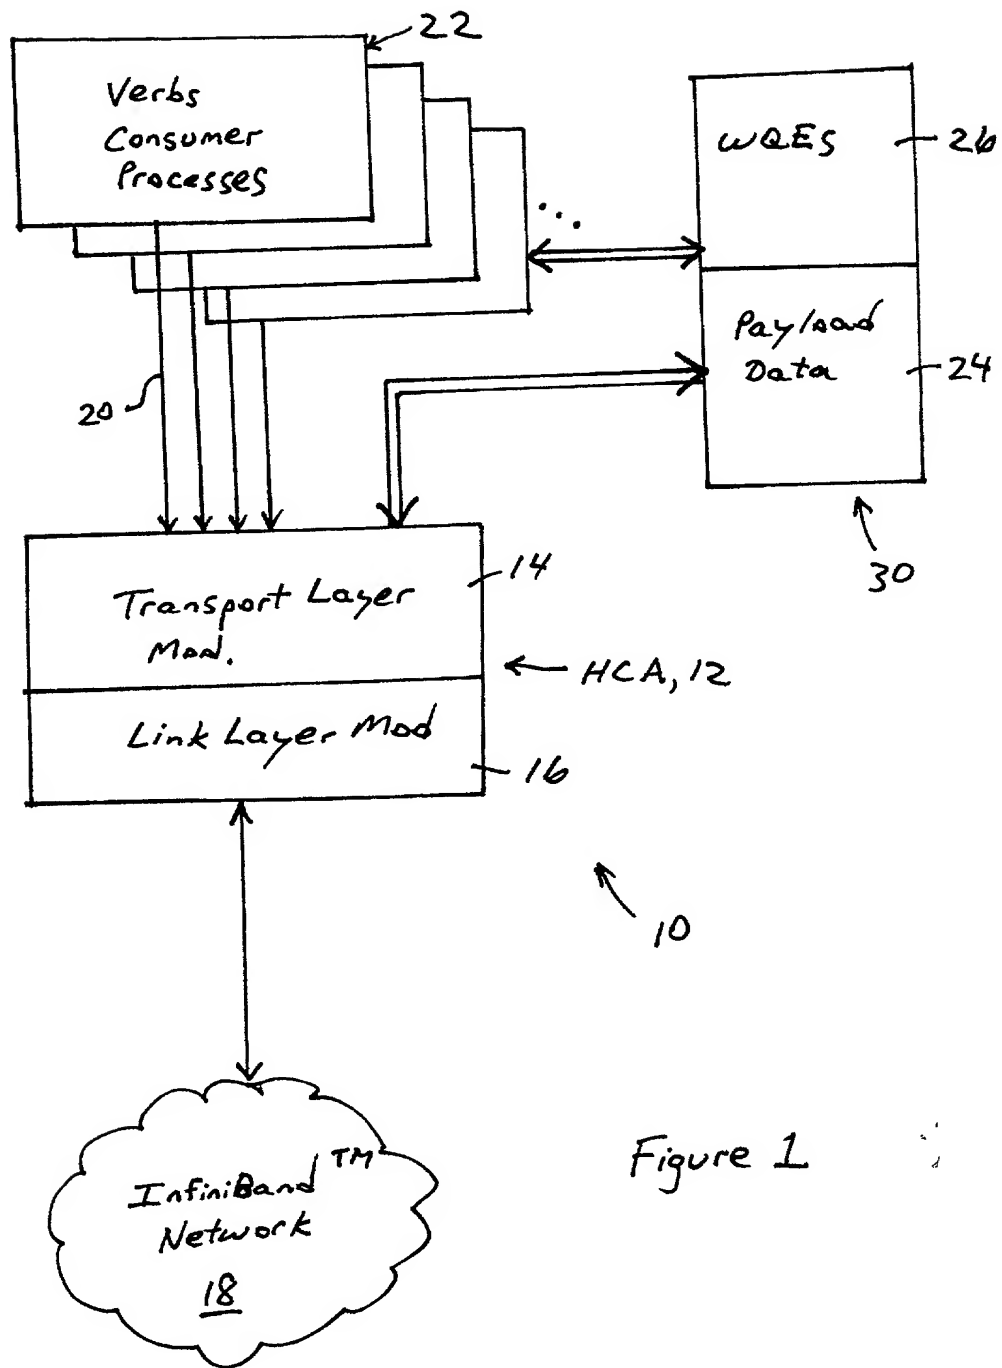 22
Verbs
Consumer
Processes
WQEs
26
...
Payload
Data
24
20
30
14
Transport Layer
Mod.
HCA, 12
Link Layer Mod
16
10
InfiniBand™
Network
18
Figure 1